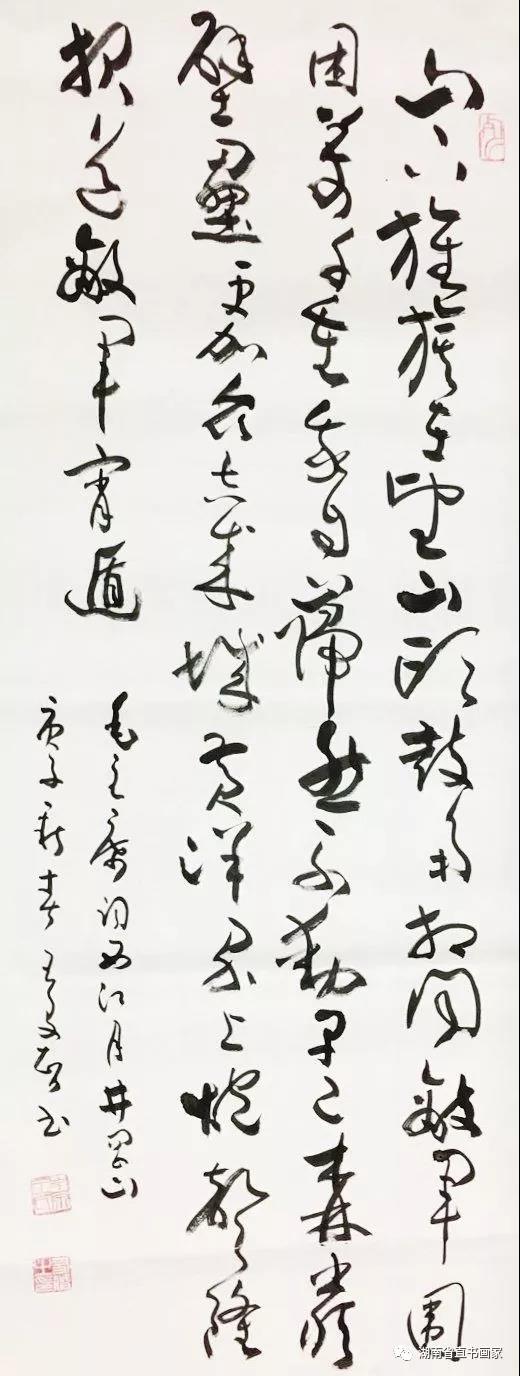 山下旌旗在望山頭鼓角相闻敵軍圍
困萬千重我自巋然不動早已森嚴
壁壘更加众志成城黄洋界上炮聲隆
报道敵軍宵遁
毛主席词西江月井冈山
庚子新春书
湖南省直书画家